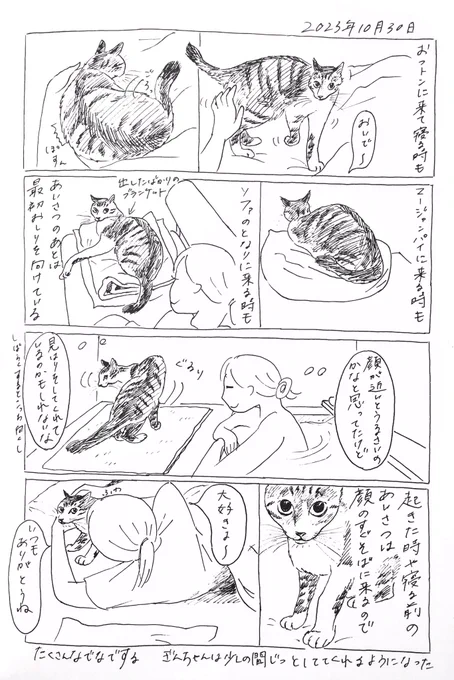 2023年10月30日
おフトンに来て寝る時も
おいで〜
ぼすん
ニージャンパイに来る時も
ソファのとなりに来る時も
出したばかりの
ブランケット
あいさつのあとは
最初おしりを向けている
顔が近いとうるさいの
かなと思ってたけど
ぐるり
見はりをしてくれて
いるのかもしれないな
起きた時や寝る前の
あいさつは
顔のすぐそばに来るので
大好きよ〜
ふわ
いつも
ありがとうね
たくさんなでなでする
ぎんちゃんは少しの間じっとしててくれるようになった